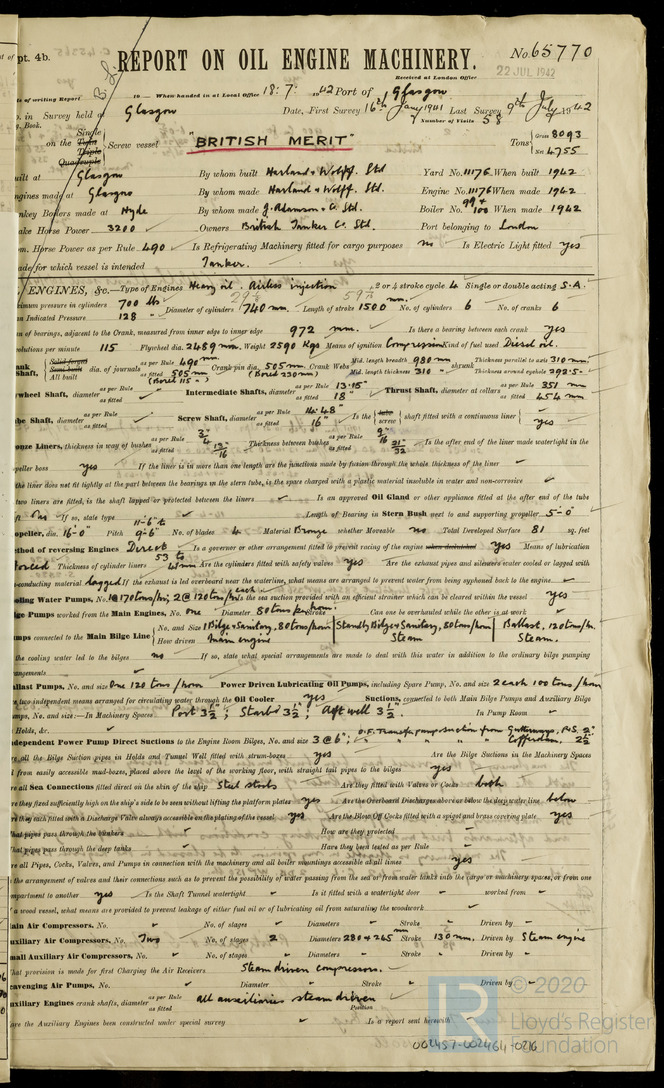 pt. 4b.
REPORT ON OIL ENGINE MACHINERY.
No. 65770
Received at London Office
22 JUL 1942
te of writing Report 19 When handed in at Local Office 18 : 7 : 1942 Port of Glasgow
o. in Survey held at Glasgow Date, First Survey 16th Jany 1941 Last Survey 9th July 1942
g. Book. Number of Visits 58
on the Single Twin Triple Quadruple Screw vessel "BRITISH MERIT" Tons Gross 8093 Net 4755
uilt at Glasgow By whom built Harland & Wolff. Ltd Yard No. 1117G When built 1942
ngines made at Glasgow By whom made Harland & Wolff. Ltd. Engine No. 1117G When made 1942
nkey Boilers made at Hyde By whom made J. Adamson & Co. Ltd. Boiler No. 99 + 100 When made 1942
ake Horse Power 3200 Owners British Tanker Co. Ltd. Port belonging to London
om. Horse Power as per Rule 490 Is Refrigerating Machinery fitted for cargo purposes no Is Electric Light fitted yes
ade for which vessel is intended Tanker.
ENGINES, &c. Type of Engines Heavy oil. Airless injection 2 or 4 stroke cycle 4 Single or double acting S.A.
ximum pressure in cylinders 700 lbs Diameter of cylinders 740 mm. Length of stroke 1500 mm. No. of cylinders 6 No. of cranks 6
an Indicated Pressure 128 "
n of bearings, adjacent to the Crank, measured from inner edge to inner edge 972 mm. Is there a bearing between each crank yes
volutions per minute 115 Flywheel dia. 2489 mm. Weight 2590 Kgs Means of ignition Compression Kind of fuel used Diesel oil.
ank Shaft, Solid forged Semi built All built dia. of journals as per Rule 490 mm as fitted 505 mm (Bored 115") Crank pin dia. 505 mm. (Bored 230mm) Crank Webs Mid. length breadth 980 mm Mid. length thickness 310 " shrunk Thickness parallel to axis 310 mm Thickness around eyehole 292.5
wheel Shaft, diameter as per Rule as fitted Intermediate Shafts, diameter as per Rule 13.15 as fitted 18" Thrust Shaft, diameter at collars as per Rule 351 mm as fitted 454 mm
be Shaft, diameter as per Rule as fitted Screw Shaft, diameter as per Rule 14.48 as fitted 16" Is the tube screw shaft fitted with a continuous liner yes
onze Liners, thickness in way of bushes as per Rule 3/4" as fitted 13/16" Thickness between bushes as per Rule 9/16" as fitted 21/32" Is the after end of the liner made watertight in the
peller boss yes If the liner is in more than one length are the junctions made by fusion through the whole thickness of the liner
the liner does not fit tightly at the part between the bearings in the stern tube, is the space charged with a plastic material insoluble in water and non-corrosive
two liners are fitted, is the shaft lapped or protected between the liners Is an approved Oil Gland or other appliance fitted at the after end of the tube
If so, state type Length of Bearing in Stern Bush next to and supporting propeller 5'-0"
opeller, dia. 16'-0" Pitch 11'-6" to 9'-6" No. of blades 4 Material Bronze whether Moveable no Total Developed Surface 81 sq. feet
ethod of reversing Engines Direct Is a governor or other arrangement fitted to prevent racing of the engine when declutched yes Means of lubrication
forced Thickness of cylinder liners 53 to 48mm Are the cylinders fitted with safety valves yes Are the exhaust pipes and silencers water cooled or lagged with
-conducting material lagged If the exhaust is led overboard near the waterline, what means are arranged to prevent water from being syphoned back to the engine
oling Water Pumps, No. 1@170 tons/hr; 2@120 tons/hr each. Is the sea suction provided with an efficient strainer which can be cleared within the vessel yes
lge Pumps worked from the Main Engines, No. One Diameter 80 tons per hour. Stroke Can one be overhauled while the other is at work
mps connected to the Main Bilge Line No. and Size 1 Bilge & Sanitary, 80 tons/hour Standby Bilge & Sanitary, 80 tons/hour Ballast, 120 tons/hr.
How driven main engine Steam Steam.
the cooling water led to the bilges no If so, state what special arrangements are made to deal with this water in addition to the ordinary bilge pumping
rangements
allast Pumps, No. and size One 120 tons/hour Power Driven Lubricating Oil Pumps, including Spare Pump, No. and size 2 each 100 tons/hour
two independent means arranged for circulating water through the Oil Cooler yes Suctions, connected to both Main Bilge Pumps and Auxiliary Bilge
umps, No. and size:—In Machinery Spaces Port 3½"; Starbd 3½"; Aft well 3½". In Pump Room
Holds, &c.
dependent Power Pump Direct Suctions to the Engine Room Bilges, No. and size 3 @ 6"; O.F. Transfer pump suction from Gutterways, P&S. 2" Cofferdam. 2½"
re all the Bilge Suction pipes in Holds and Tunnel Well fitted with strum-boxes yes Are the Bilge Suctions in the Machinery Spaces
d from easily accessible mud-boxes, placed above the level of the working floor, with straight tail pipes to the bilges yes
re all Sea Connections fitted direct on the skin of the ship Steel stools Are they fitted with Valves or Cocks both
re they fixed sufficiently high on the ship's side to be seen without lifting the platform plates yes Are the Overboard Discharges above or below the deep water line below
re they each fitted with a Discharge Valve always accessible on the plating of the vessel yes Are the Blow Off Cocks fitted with a spigot and brass covering plate yes
hat pipes pass through the bunkers How are they protected
hat pipes pass through the deep tanks Have they been tested as per Rule
re all Pipes, Cocks, Valves, and Pumps in connection with the machinery and all boiler mountings accessible at all times yes
the arrangement of valves and their connections such as to prevent the possibility of water passing from the sea or from water tanks into the cargo or machinery spaces, or from one
mpartment to another yes Is the Shaft Tunnel watertight Is it fitted with a watertight door worked from
a wood vessel, what means are provided to prevent leakage of either fuel oil or of lubricating oil from saturating the woodwork
ain Air Compressors, No. No. of stages Diameters Stroke Driven by
uxiliary Air Compressors, No. Two No. of stages 2 Diameters 280 & 265 mm Stroke 130 mm. Driven by Steam engine
mall Auxiliary Air Compressors, No. No. of stages Diameters Stroke Driven by
hat provision is made for first Charging the Air Receivers Steam driven compressors.
cavenging Air Pumps, No. Diameter Stroke Driven by
uxiliary Engines crank shafts, diameter as per Rule as fitted all auxiliaries steam driven Position
ave the Auxiliary Engines been constructed under special survey Is a report sent herewith
© 2020
Lloyd's Register
Foundation
002457-002464-0216